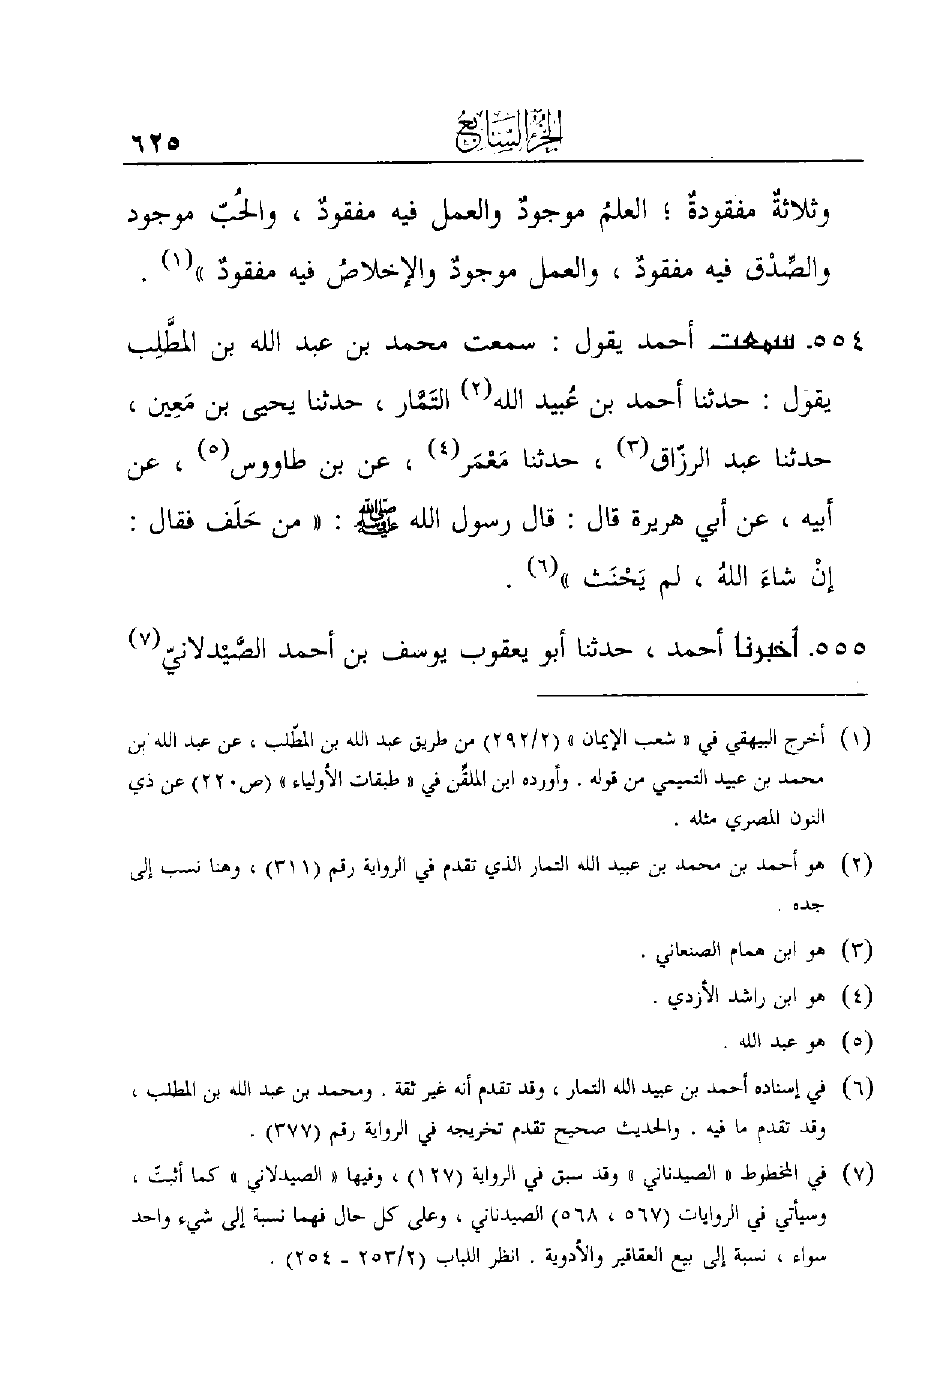 ٦٢٥ الجزء السابع
وثلاثةٌ مفقودةٌ ؛ العلمُ موجودٌ والعمل فيه مفقودٌ ، والحُبّ موجود
والصِّدْق فيه مفقودٌ ، والعمل موجودٌ والإخلاصُ فيه مفقودٌ »(١) .
٥٥٤. سمعت أحمد يقول : سمعت محمد بن عبد الله بن المطَّلِب
يقول : حدثنا أحمد بن عُبيد الله(٢) التَمَّار ، حدثنا يحيى بن مَعِين ،
حدثنا عبد الرزّاق(٣) ، حدثنا مَعْمَر(٤) ، عن بن طاووس(٥) ، عن
أبيه ، عن أبي هريرة قال : قال رسول الله ﷺ : « من حَلَف فقال :
إنْ شاءَ اللهُ ، لم يَحْنَث »(٦) .
٥٥٥. أخبرنا أحمد ، حدثنا أبو يعقوب يوسف بن أحمد الصَّيْدلانيّ(٧)
(١) أخرج البيهقي في « شعب الإيمان » (٢٩٢/٢) من طريق عبد الله بن المطّلب ، عن عبد الله بن
محمد بن عبيد التميمي من قوله . وأورده ابن الملقِّن في « طبقات الأولياء » (ص٢٢٠) عن ذي
النون المصري مثله .
(٢) هو أحمد بن محمد بن عبيد الله التمار الذي تقدم في الرواية رقم (٣١١) ، وهنا نسب إلى
جده .
(٣) هو ابن همام الصنعاني .
(٤) هو ابن راشد الأزدي .
(٥) هو عبد الله .
(٦) في إسناده أحمد بن عبيد الله التمار ، وقد تقدم أنه غير ثقة . ومحمد بن عبد الله بن المطلب ،
وقد تقدم ما فيه . والحديث صحيح تقدم تخريجه في الرواية رقم (٣٧٧) .
(٧) في المخطوط « الصيدناني » وقد سبق في الرواية (١٢٧) ، وفيها « الصيدلاني » كما أثبتّ ،
وسيأتي في الروايات (٥٦٧ ، ٥٦٨) الصيدناني ، وعلى كل حال فهما نسبة إلى شيء واحد
سواء ، نسبة إلى بيع العقاقير والأدوية . انظر اللباب (٢٥٣/٢ ـ ٢٥٤) .